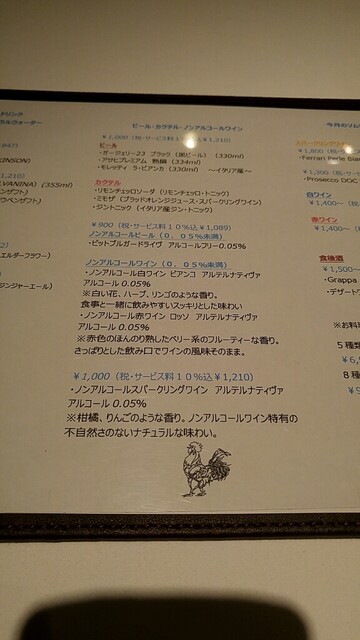 ビール・カクテル・ノンアルコールワイン
¥1,000（税・サービス料10%込¥1,210）
ビール
・ガージェリー23 ブラック（黒ビール） (330ml)
・アサヒプレミアム 熟撰 (334ml)
・モレッティ ラ・ビアンカ (330ml) ～イタリア産～
カクテル
・リモンチェロソーダ（リモンチェロ・トニック）
・ミモザ（ブラッドオレンジジュース・スパークリングワイン）
・ジントニック（イタリア産ジン・トニック）
¥900（税・サービス料10%込¥1,089）
ノンアルコールビール（0.05%未満）
・ピットブルガードライヴ アルコールフリー0.05%
ノンアルコールワイン（0.05%未満）
・ノンアルコール白ワイン ビアンコ アルテルナティヴァ
アルコール 0.05%
※白い花、ハーブ、リンゴのような香り。
食事と一緒に飲みやすいスッキリとした味わい
・ノンアルコール赤ワイン ロッソ アルテルナティヴァ
アルコール 0.05%
※赤色のほんのり熟したベリー系のフルーティーな香り。
さっぱりとした飲み口でワインの風味そのまま。
¥1,000（税・サービス料10%込¥1,210）
・ノンアルコールスパークリングワイン アルテルナティヴァ
アルコール 0.05%
※柑橘、りんごのような香り。ノンアルコールワイン特有の
不自然さのないナチュラルな味わい。
ドリンク
ラルウォーター
KINSON)
1,210)
VANINA) (355ml)
エルダーフラワー)
ジンジャーエール)
¥1,800（税・サ
・Ferrari Perle Bian
¥1,300（税・サービ
・Prosecco DOC
白ワイン
¥1,400～（税
赤ワイン
¥1,400～（
食後酒
¥1,500～
・Grappa
・デザートワ
※お料
5種類
8種